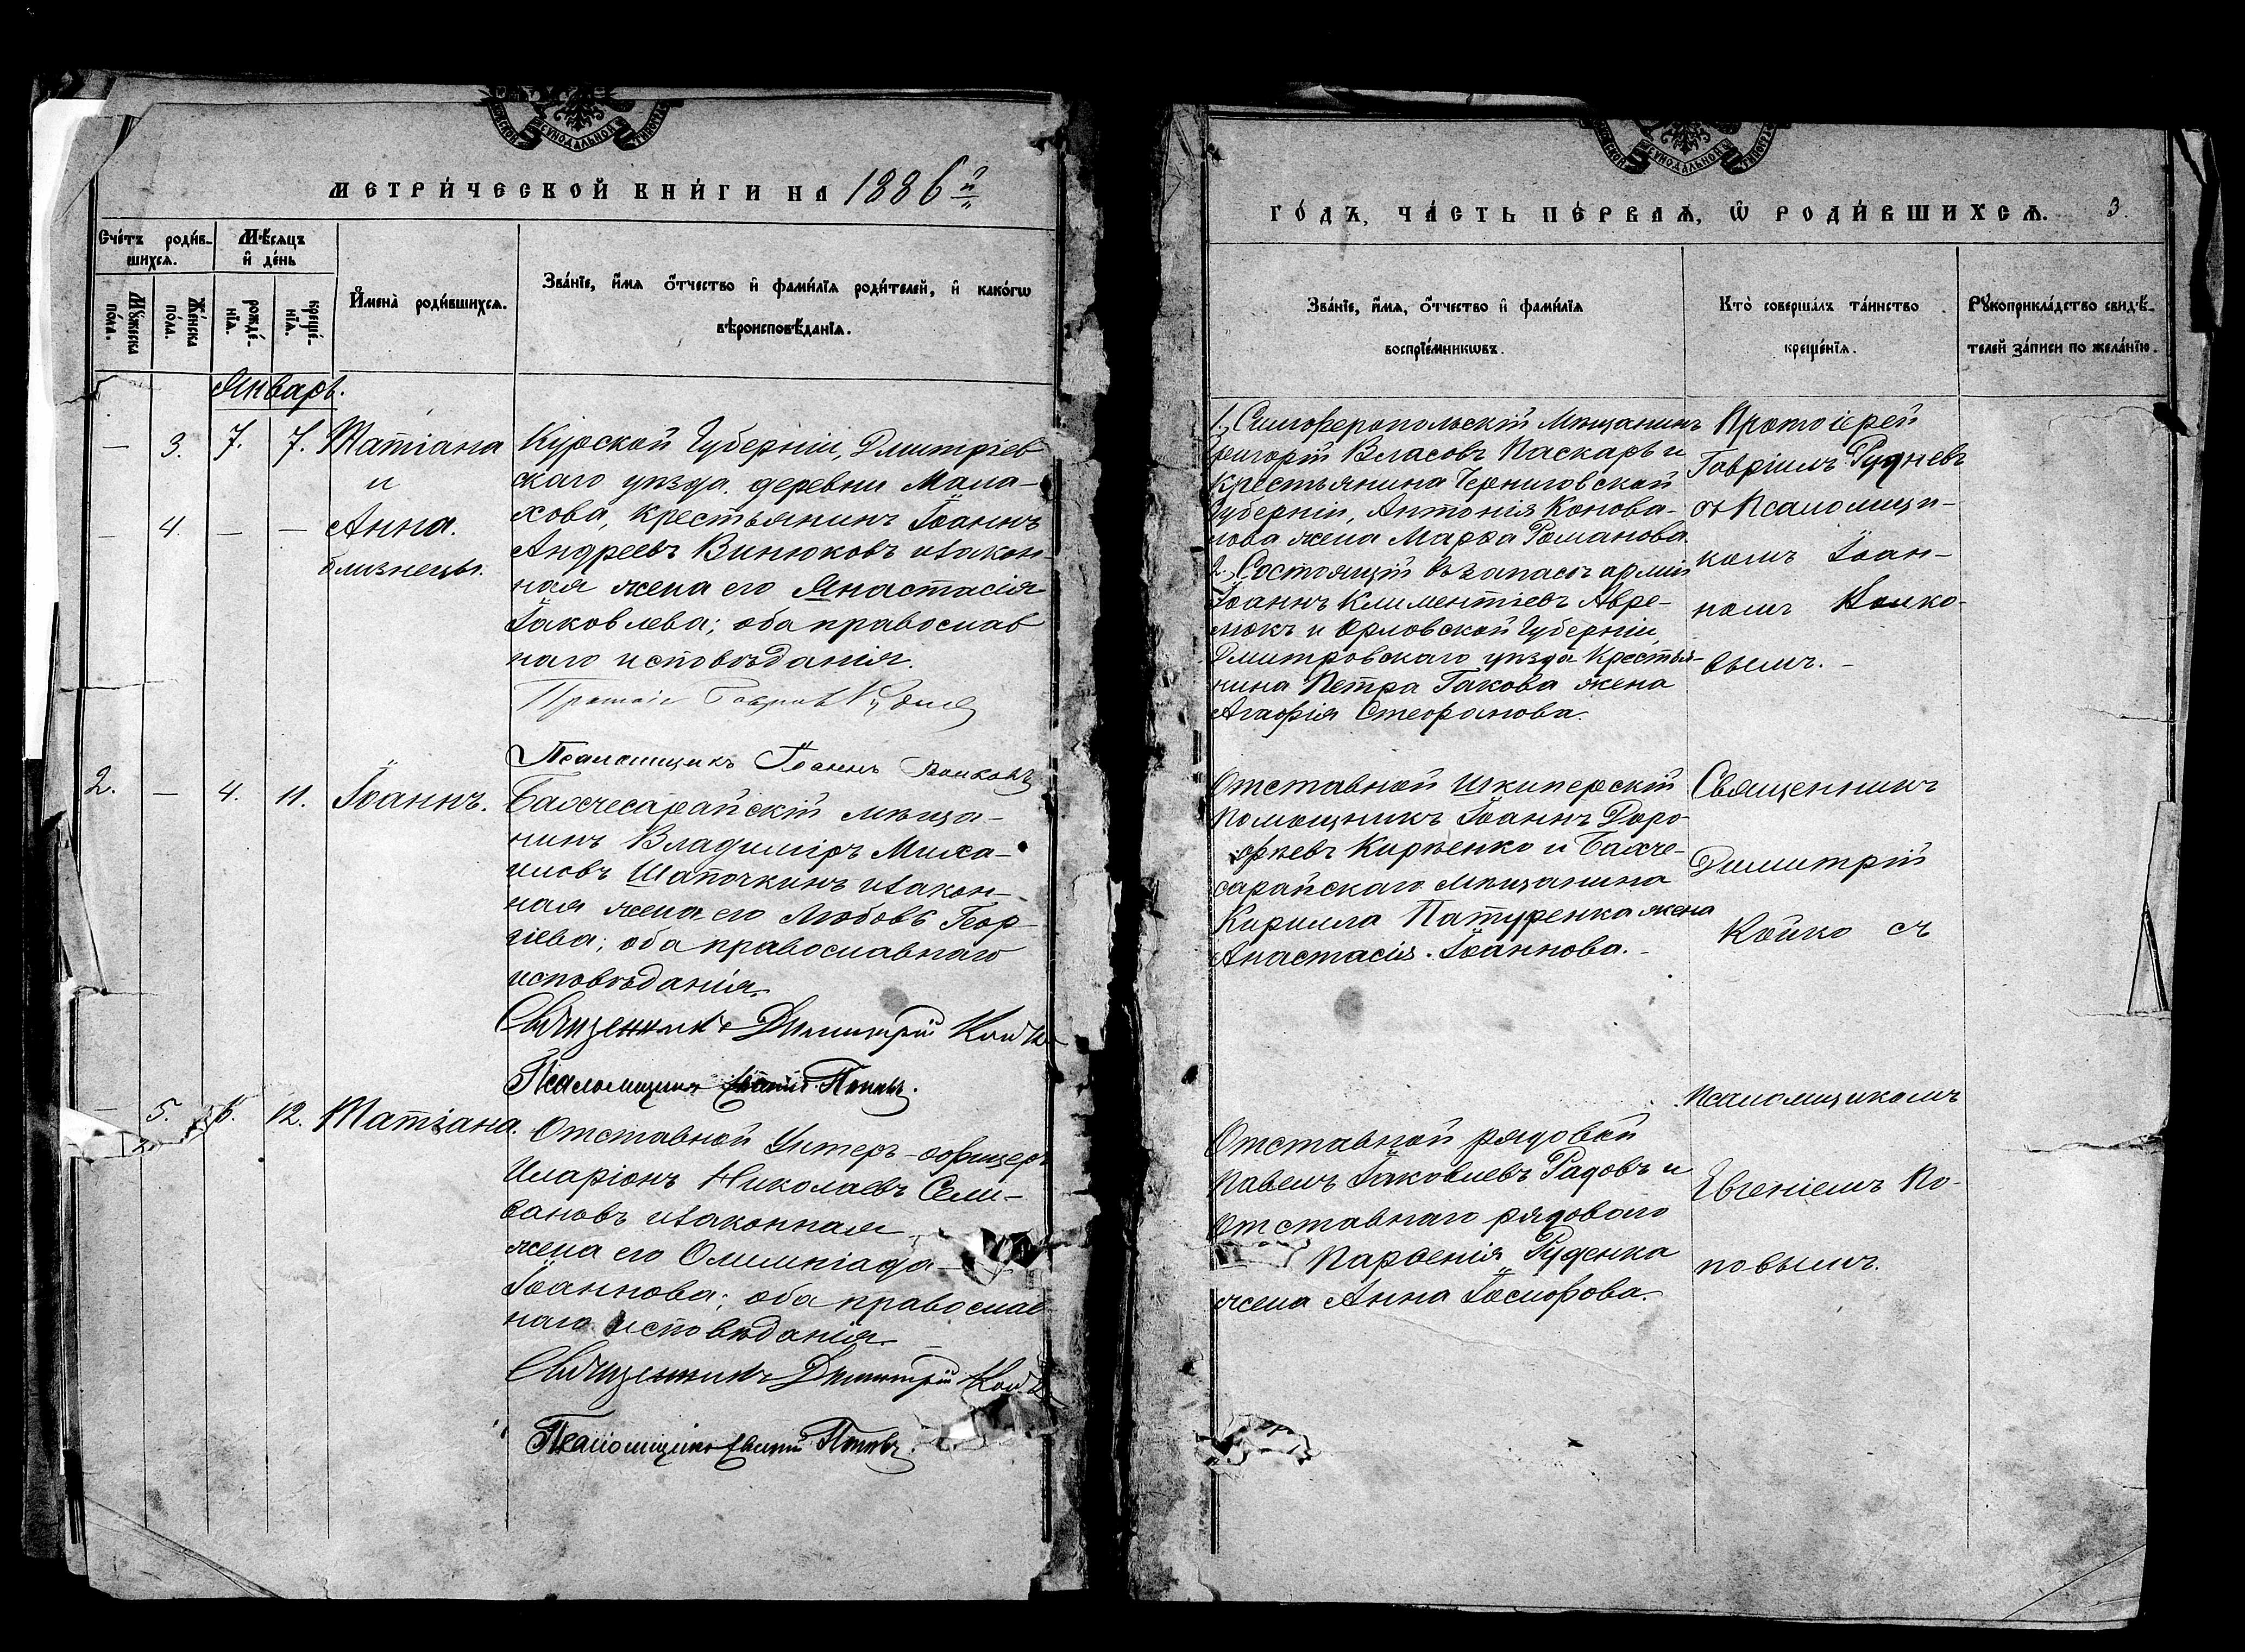 МОСКОВСКОЙ СѴНОДАЛЬНОЙ ТИПОГРАФІИ
МЕТРИ́ЧЕСКОЙ КНИ́ГИ НА 1886й
Сче́тъ роди́в-
шихсѧ.
Мѣ́сѧцъ
и҆ де́нь
Мꙋ́жеска
по́ла.
Же́нска
по́ла.
рожде́-
нїѧ.
креще́-
нїѧ.
И҆мена̀ роди́вшихсѧ.
Зва́нїе, и҆́мѧ ѻ҆́тчество и҆ фами́лїѧ роди́телей, и҆ како́гѡ
вѣроисповѣ́данїѧ.
Январь.
— 3. 7. 7. Татіана
и
— 4. — — Анна.
близнецы.
Курской Губерніи, Дмитріев
скаго уѣзда, деревни Мала-
хова, крестьянинъ Іоаннъ
Андреевъ Винюковъ и закон
ная жена его Анастасія
Іаковлева; оба православ
наго исповѣданія.
Псаломщикъ Іоаннъ Волковъ
2. — 4. 11. Іоаннъ.
Бахчесарайскій мѣща-
нинъ Владиміръ Миха-
иловъ Шапочкинъ и закон-
ная жена его Любовь Геор-
гіева; оба православнаго
исповѣданія.
Священникъ Димитрій Койко
Псаломщикъ Евгеній Поповъ.
— 5. 6. 12. Татіана.
Отставной Унтеръ-офицеръ
Иларіонъ Николаевъ Сели-
вановъ и законная
жена его Олимпіада
Іоаннова; оба православ
наго исповѣданія.
Священникъ Димитрій Койко
Псаломщикъ Евгеній Поповъ.
МОСКОВСКОЙ СѴНОДАЛЬНОЙ ТИПОГРАФІИ
ГО́ДЪ, ЧА́СТЬ ПЕ́РВАѦ, Ѽ РОДИ́ВШИХСѦ. 3.
Зва́нїе, и҆́мѧ, ѻ҆́тчество и҆ фами́лїѧ
воспрїе́мникѡвъ.
Кто̀ соверша́лъ та́инство
креще́нїѧ.
Рꙋкоприкла́дство свидѣ́-
телей за́писи по жела́нїю.
1., Симферопольскій Мѣщанинъ
Григорій Власовъ Паскаръ и
Крестьянина Черниговской
Губерніи, Антонія Конова-
лова жена Марѳа Романова.
2., Состоящій въ запасѣ арміи
Іоаннъ Климентіевъ Авре-
мокъ и Орловской Губерніи,
Дмитровскаго уѣзда Крестья-
нина Петра Гакова жена
Агафія Стефанова.
Протоіерей
Гавріилъ Рудневъ
съ Псаломщи-
комъ Іоан-
номъ Волко-
вымъ. -
Отставной Шкиперскій
Помощникъ Іоаннъ Доро-
феевъ Кирѣенко и Бахче-
сарайскаго мѣщанина
Кирилла Патуренка жена
Анастасія Іоаннова. -
Священникъ
Димитрій
Койко съ
Псаломщикомъ
Евгеніемъ По-
повымъ.
Отставной рядовой
Павелъ Іаковлевъ Радовъ и
Отставнаго рядового
Парѳенія Руденка
жена Анна Іосифова.